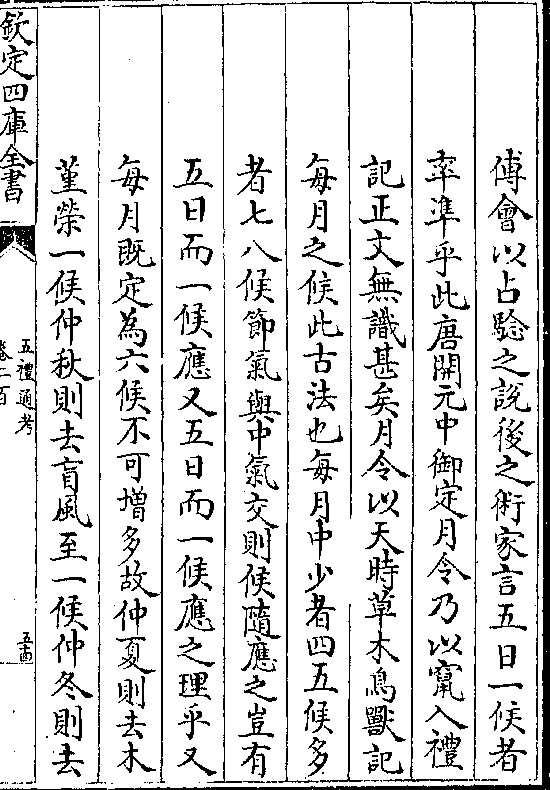 傅會以占驗之說後之術家言五日一候者
率準乎此唐開元中御定月令乃以竄入禮
記正文無識甚矣月令以天時草木鳥獸記
每月之候此古法也每月中少者四五候多
者七八候節氣與中氣交則候隨應之豈有
五日而一候應又五日而一候應之理乎又
每月既定為六候不可增多故仲夏則去木
堇榮一候仲秋則去盲風至一候仲冬則去
欽定四庫全書
五禮通考
卷二百
五十四